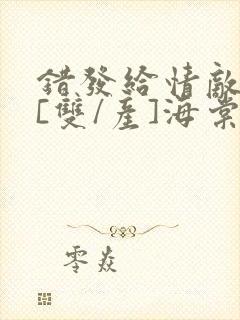 錯發給情敵
[雙/產]海棠
零焱